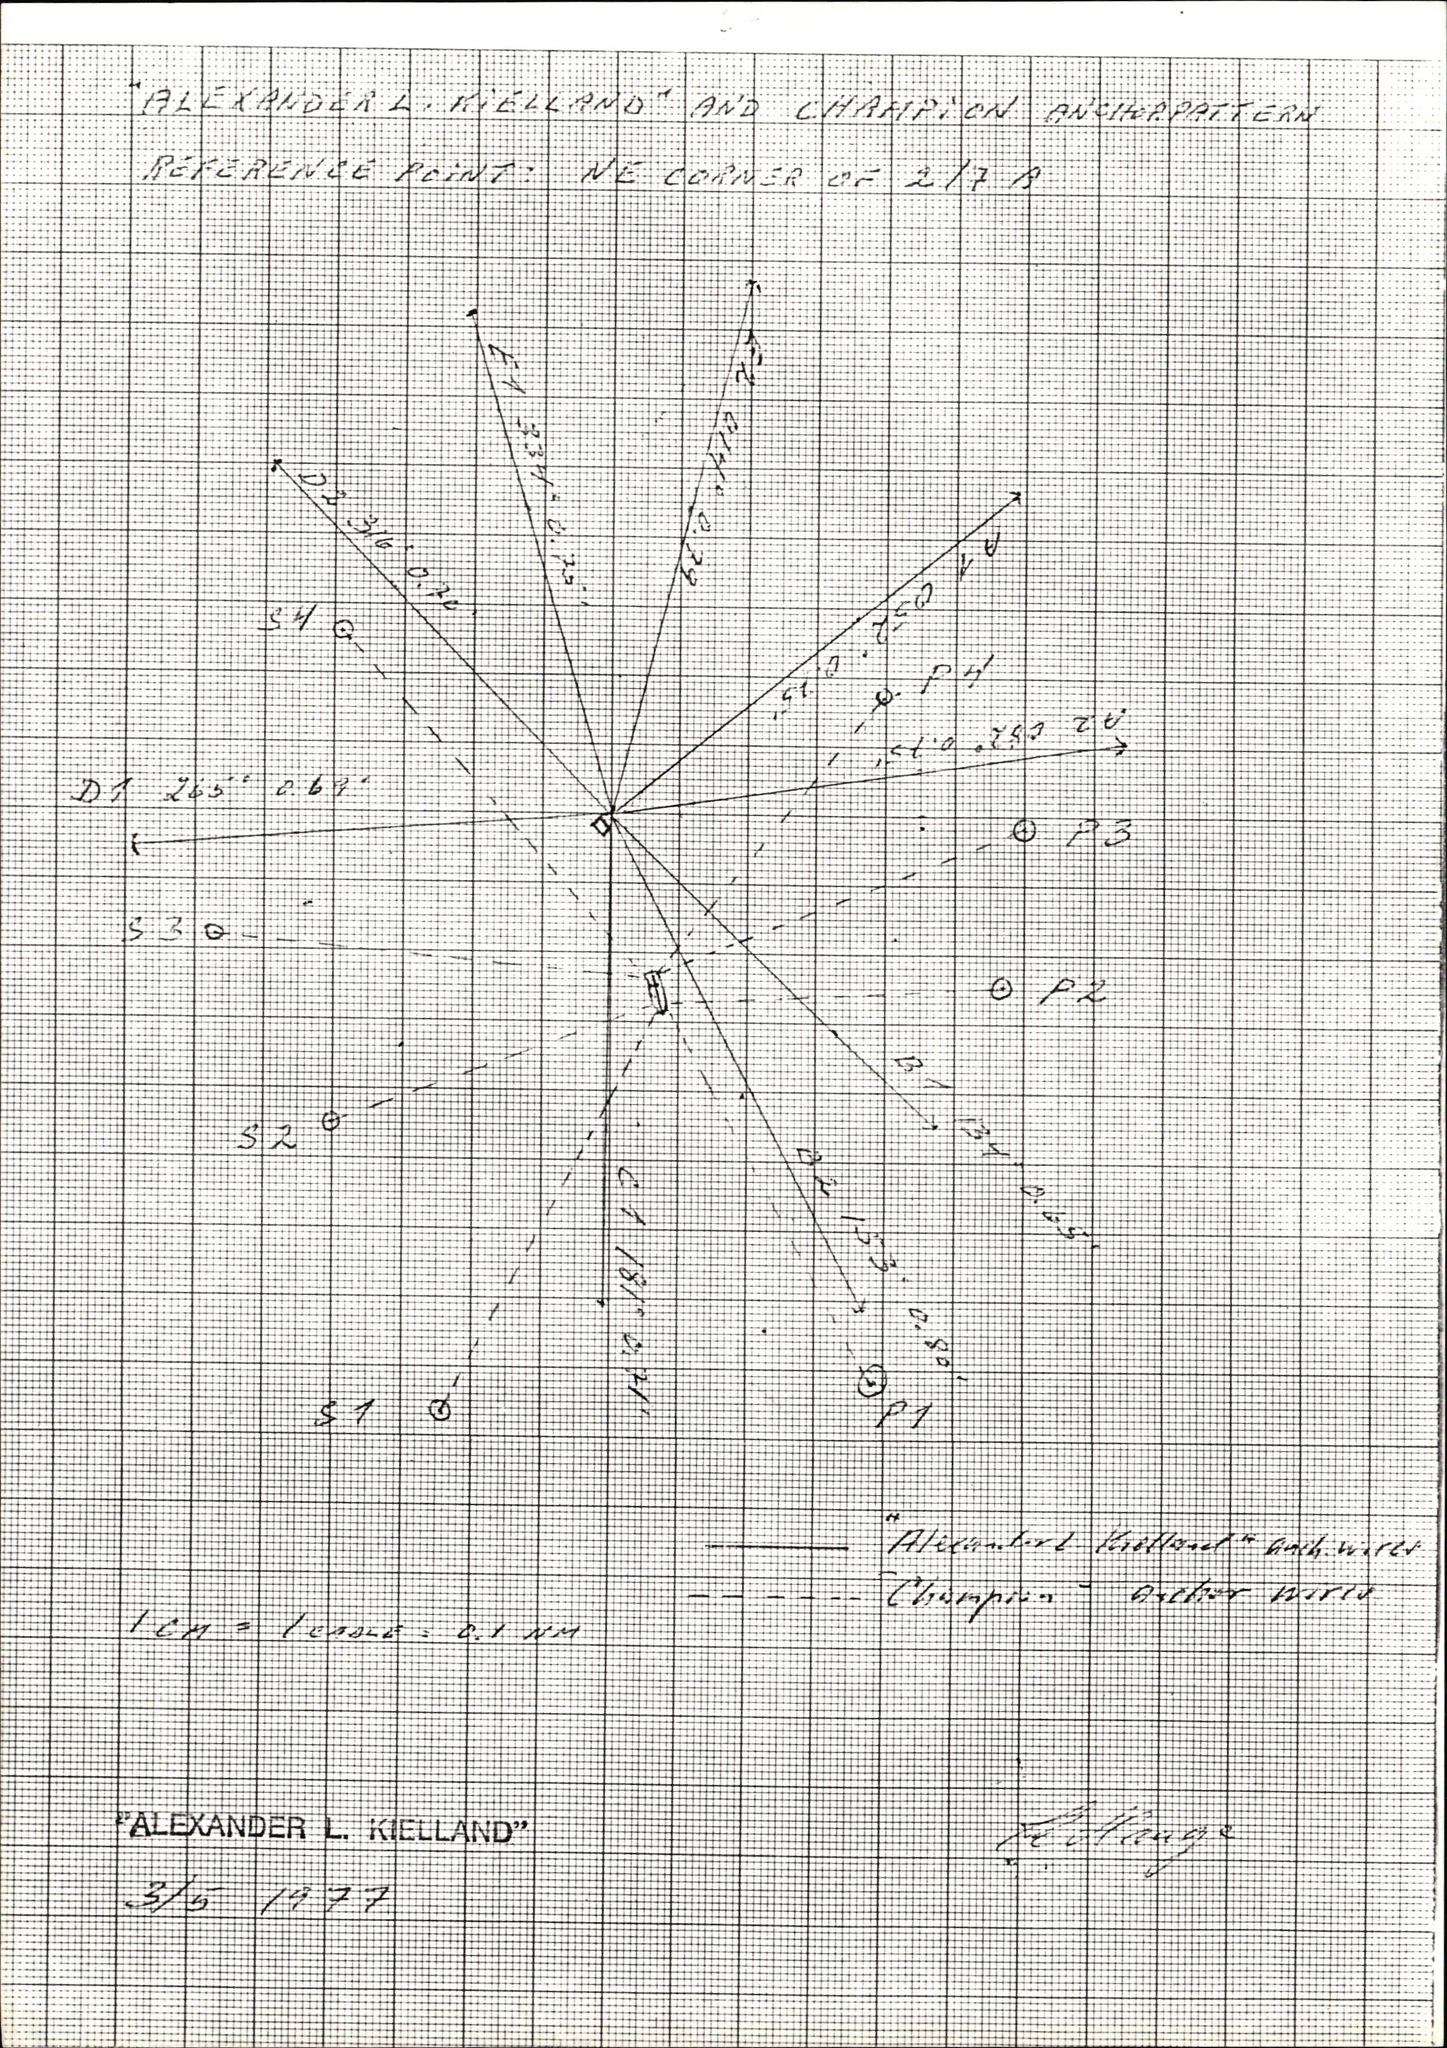 "ALEXANDER L. KIELLAND" AND CHAMPION ANCHORPATTERN
REFERENCE POINT: NE CORNER OF 2/7 A
E1 334° 0.75'
E2 014° 0.79
D2 316° 0.70'
A1 052° 0.75'
S4
P4
A2 082° 0.75'
D1 265° 0.69'
P3
S3
P2
B1 134° 0.65'
S2
B2 153° 0.80'
C1 181° 0.71'
S1
P1
"Alexander L Kielland" anch. wires
"Champion" anchor wires
1 CM = 1 CABLE = 0.1 NM
"ALEXANDER L. KIELLAND"
3/5 1977